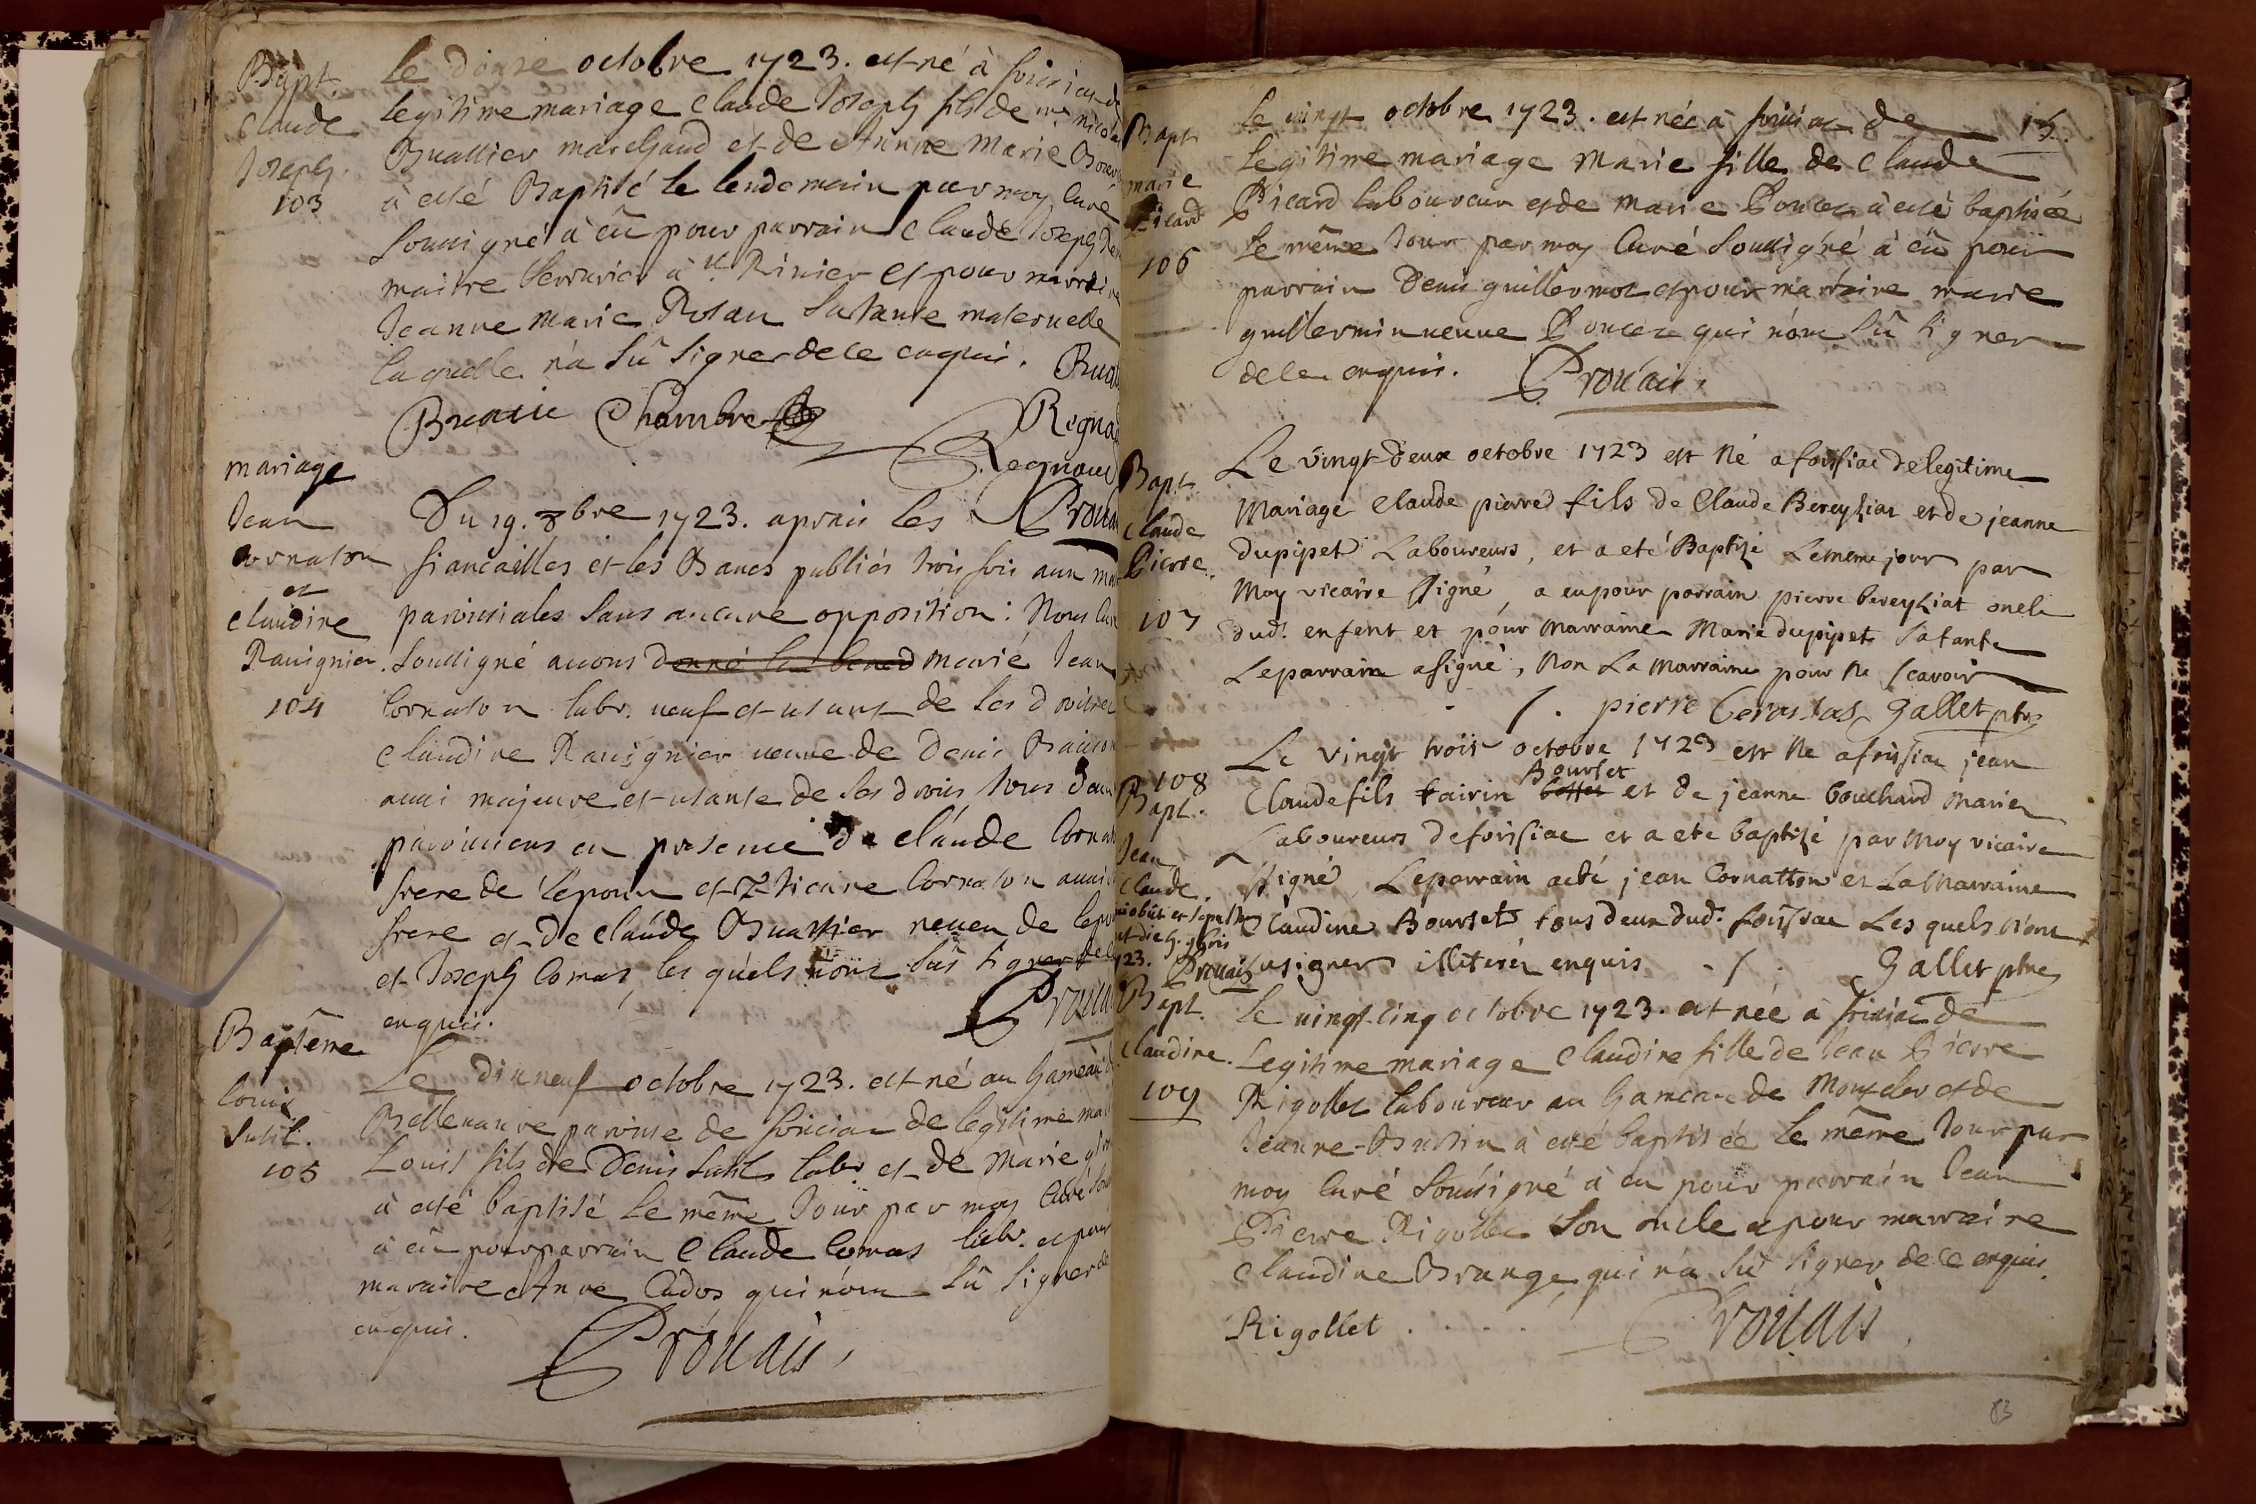 Bapt.
Claude
Joseph.
103
Le douse octobre 1723. est né à foissiat de
legitime mariage Claude Joseph fils de mre nicola
Buattier marchand et de Anne Marie
à eté Baptisé le lendemain par moy Curé
soussigné à eû pour parrain Claude Joseph
maitre serrurier à st Rinier et pour marrai
Jeanne Marie Rolan sa tante maternelle
laquelle n'a sû signer de ce enquis.
Chambre
Regna
Regnaud
Prouai
mariage
Jean
Cornaton
et
claudine
Rauignier.
104
Du 19. 8bre 1723. aprais les
fiancailles et les Bancs publiés trois fois aux
paroissiales sans aucune opposition: Nous Cur
soussigné auons donné la bened marié Jean
Cornaton labr. ueuf et usant de ses droits et
claudine Rauignier ueuue de Denis
aussi majeure et usante de ses droits tous deux
paroissiens en presence de claude Corna
frere de l'epoux et Cornaton aussi
frere et de claude Buattier neueu de lepou
et Joseph Comas, les quels n'ont sûs signer de
enquis.
Proua
Baptême
louis
subtil.
105
Le dixneuf octobre 1723. est né au hameau
Bellenauue paroisse de foissiat de legitime mar
Louis fils de Denis subtil labr. et de Marie
à eté baptisé le même Jour par moy Curé sou
à eû pour parrain Claude Comas labr. et pour
maraine Anne Cados qui n'ont sû signer de
enquis.
Prouais,
15.
Bapt.
marie
Picard
106
Le uingt octobre 1723. est née à foissiat de
legitime mariage Marie fille de Claude
Picard laboureur et de Marie Poncet à eté baptisée
le même Jour par moy Curé soussigné à eû pour
parrain Denis guillermot et pour marraine marie
guillermin ueuue Poncet qui n'ont sû signer
de ce enquis. Prouais,
Bapt.
Claude
Pierre.
107
Le vingt deux octobre 1723 est Né a foissiac de legitime
Mariage Claude pierre fils de Claude Bereyziat et de jeanne
Dupipet Laboureurs, et a eté Baptizé Le meme jour par
Moy vicaire ssigné, a eu pour parrain pierre bereyziat oncle
dud. enfent et pour Marraine Marie dupipet sa tante
Le parrain a signé, Non La Marraine pour Ne scavoir
/. pierre Gallet ptre
108
Bapt.
Jean
Claude.
obüt et sepultus
est die 9bris
723.
Prouais
Le vingt trois octobre 1723 est Ne a foissiac jean
Bourset
Claude fils fairin et de jeanne bouchard Mariez
Laboureurs de foissiac et a ete baptizé par Moy vicaire
ssigné, Le parrain a été jean Cornatton et La Marraine
Claudine Bourset tous deux dud. foissiac Les quels n'ont
su signer illiterez enquis ./. Gallet ptre
Bapt.
Claudine.
109
Le uingt-cinq octobre 1723. est née à foissiac de
legitime mariage Claudine fille de Jean Pierre
Rigollet laboureur au hameau de Montcler et de
Jeanne à eté baptisée le même Jour par
moy Curé soussigné à eu pour parrain Jean
Pierre Rigollet son oncle et pour marraine
Claudine Brange, qui n'a sû signer de ce enquis.
Rigollet . . . . . Prouais,
83